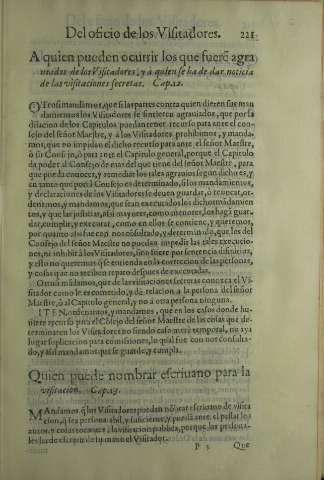 Del oficio de los Visitadores. 221
A quien pueden ocurrir los que fuerẽ agra
uiados de los Visitadores, y á quien se ha de dar noticia
de las visitaciones secretas. Cap.12.
OTrosi mandamos, que si las partes contra quien dieren sus man
damientos los Visitadores se sintieren agrauiados, que por la
dilacion de los Capitulos puedan tener recurso para ante el con-
sejo del señor Maestre, y á los Visitadores prohibimos, y manda-
mos, que no impidan el dicho recurso para ante el señor Maestre,
ò su Consejo, ò para ante el Capitulo general, porque el Capitulo
da poder al Consejo de mas del que tiene del señor Maestre, para
que pueda conocer, y remediar los tales agrauios segun dicho es, y
en tanto que por el Consejo es determinado, si los mandamientos,
y declaraciones de los Visitadores se deuen guardar, ò reuocar, or-
denamos, y mandamos, que sean executados los dichos mādamien
tos, y que las justicias, assi mayores, como menores, los hagā guar-
dar, cumplir, y executar, como en ellos se contiene, y queremos,
por quanto assi fue con nos consultado, y determinado, que los del
Consejo del señor Maestre no puedan impedir las tales execucio-
nes, ni inhibir à los Visitadores, sino fuere por sentencia difinitiua,
y esto no queremos q̃ se entienda en la correccion de las personas,
y cosas que no reciben reparo despues de executadas.
Otrosi mādamos, que de las visitaciones secretas conozca el Vi-
sitador como le es cometido, y dè relacion a la persona del señor
Maestre, ò al Capitulo general, y no à otra persona ninguna.
ITEN, ordenamos, y mandamos, que en los casos donde hu-
uiere recurso para el Cōsejo del señor Maestre de las cosas que de-
terminaren los Visitadores no siendo caso mere temporal, no aya
lugar suplicacion para comissiones, lo qual fue con nos consulta-
do, y assi mandamos que se guarde, y cumpla.
Quien puede nombrar escriuano para la
visitacion. Cap.13.
MAndamos q̃ los Visitadores puedan nōbrar escriuano de visita
cion, q̃ sea persona abil, y suficiente, y pueda ante el passar los
autos, y cosas tocantes à la visitacion
les Visitador.
P 5 Que